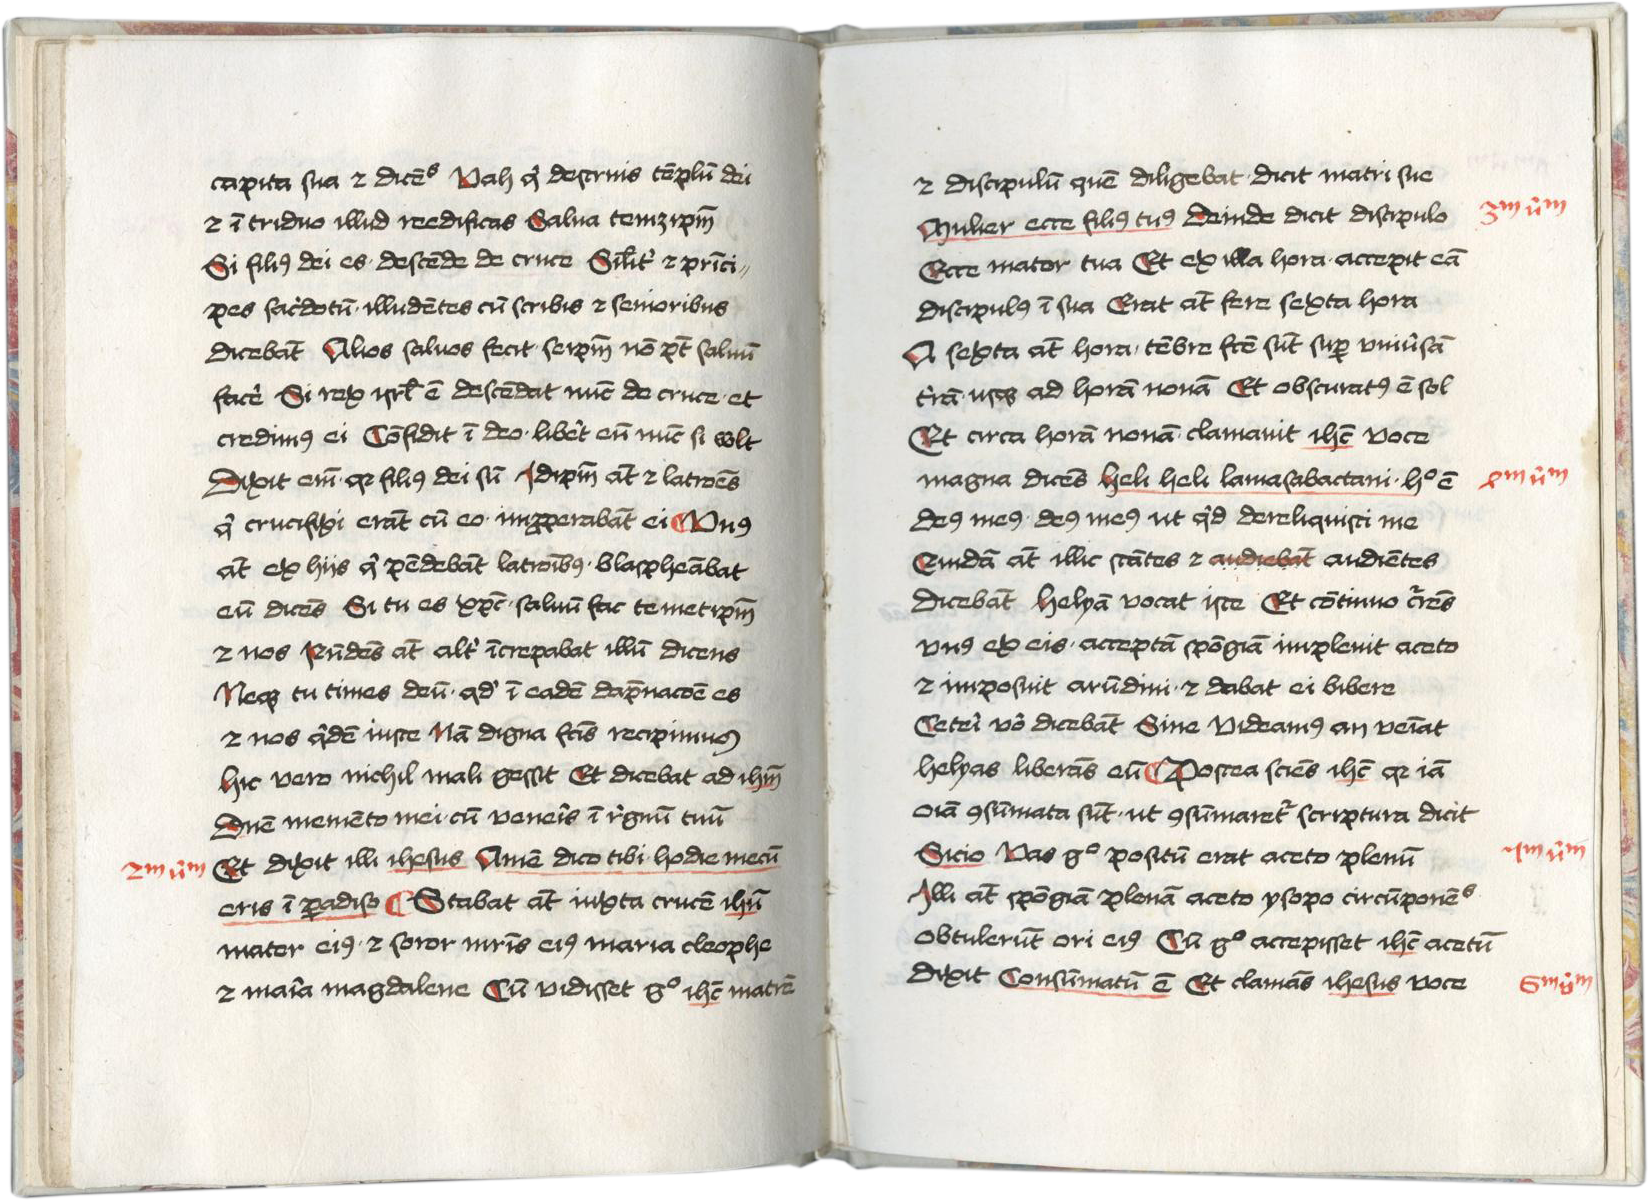 capita sua ⁊ dicēs Vah q̇ destruis tēplū dei
⁊ ī triduo illud reedificas Salua temꝫip̄m
Si filiꝰ dei es · descēde de cruce Sil̄it' ⁊ prīci〃
pes sac̓dotū · illudētes cū scribis ⁊ senioribus
dicebāt Alios saluos fecit · seip̄m nō pt̄ saluū
fac̓e Si rex isrl̄ ē descēdat nūc de cruce · et
credimꝰ ei Cōfidit ī deo · libe̓t eū nūc si wlt
Dixit eni̅ · qꝛ filiꝰ dei sū Idip̄m at̄ ⁊ latroēs
q̇ crucifixi erāt cū eo · imꝓperabāt ei Vnꝰ
at̄ ex hijs q̇ pēdebāt latroībꝰ · blaspheābat
eū dicēs Si tu es xp̄c · saluū fac temetip̄m
⁊ nos Rn̄dēs at̄ alt' īcrepabat illū dicens
Neqꝫ tu times deū · qd' ī eadē dāpnacoē es
⁊ nos q̇dē iuste Nā digna fc̄is recipimus
hic vero nichil mali gessit Et dicebat ad ih̄m
Dn̄e memēto mei · cū vene̓is ī r̓gnū tuū
2m̄ v̓m Et dixit illi ihesus Amē dico tibi hodie mecū
eris ī ꝑadiso Stabat at̄ iuxta crucē ih̄ū
mater eiꝰ · ⁊ soror mr̄is eiꝰ maria cleophe
⁊ maīa magdalene Cū vidisset gͦ ih̄c matrē
⁊ discipulū quē diligebat · dicit matri sue
Mulier ecce filiꝰ tuꝰ deinde dicit discipulo 3m̄ v̓m
Ecce mater tua Et ex illa hora · accepit eā
discipulꝰ ī sua Erat at̄ fere sexta hora
A sexta at̄ hora · tēbre fc̄e sūt suꝑ vniu̓sā
t̓rā · usqꝫ ad horā nonā Et obscuratꝰ ē sol
Et circa horā nonā · clamauit ih̄c voce
magna dicēs heli heli lamasabactani · hͦ ē 4m̄ v̓m
deꝰ meꝰ · deꝰ meꝰ ut q̇d dereliquisti me
Quidā at̄ illic stātes ⁊ audiebāt audiētes
dicebāt helyā vocat iste Et cōtinuo c̓rēs
vnꝰ ex eis · acceptā spōgiā impleuit aceto
⁊ imposuit arūdini · ⁊ dabat ei bibere
Cete̓i vo̓ dicebāt Sine videamꝰ an veīat
helyas liberās eū Postea sciēs ih̄c qꝛ iā
oīa ꝯsūmata sūt · ut ꝯsūmaret̓ scriptura dicit
Sicio Vas gͦ positū erat aceto plenū 5m̄ v̓m
Illi at̄ spōgiā plenā aceto ysopo circūponēs
obtulerūt ori eiꝰ Cū gͦ accepisset ih̄c acetū
dixit Consūmatū ē Et clamās ihesus voce 6m̄ v̓m